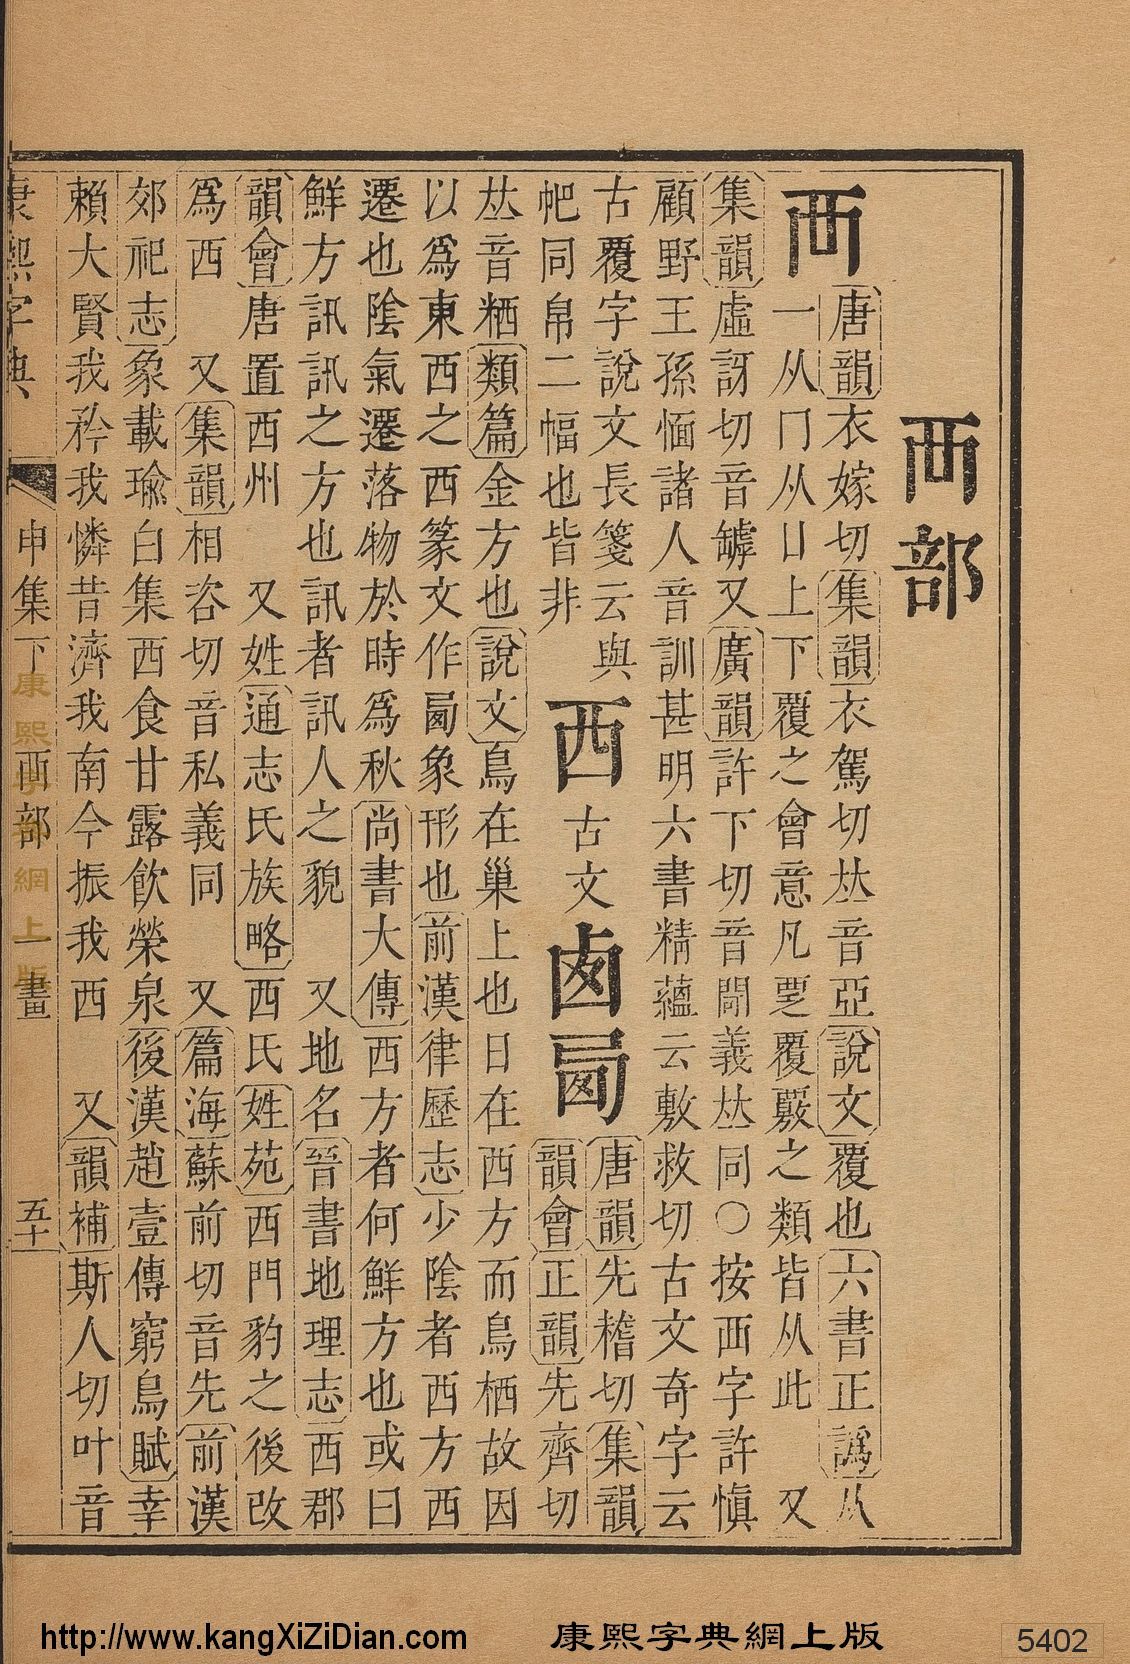 襾部
襾
唐韻衣嫁切集韻衣駕切𠀤音亞說文覆也六書正譌从
一从冂从凵上下覆之會意凡覂覆覈之類皆从此　又
集韻虛訝切音罅又廣韻許下切音閜義𠀤同○按襾字許愼
顧野王孫愐諸人音訓甚明六書精蘊云敷救切古文奇字云
古覆字說文長箋云與
帊同帛二幅也皆非
西
古文
卥𠧧
唐韻先稽切集韻
韻會正韻先齊切
𠀤音粞類篇金方也說文鳥在巢上也日在西方而鳥栖故因
以爲東西之西篆文作𠧧象形也前漢律歷志少陰者西方西
遷也陰氣遷落物於時爲秋尚書大傳西方者何鮮方也或曰
鮮方訊訊之方也訊者訊人之貌　又地名晉書地理志西郡
韻會唐置西州　又姓通志氏族略西氏姓苑西門豹之後改
爲西　又集韻相咨切音私義同　又篇海蘇前切音先前漢
郊祀志象載瑜白集西食甘露飮榮泉後漢趙壹傳窮鳥賦幸
賴大賢我矜我憐昔濟我南今振我西　又韻補斯人切叶音
康熙字典
申集下
襾部
一畫
五十
康熙字典網上版
http://www.kangXiZiDian.com
康熙字典網上版
5402